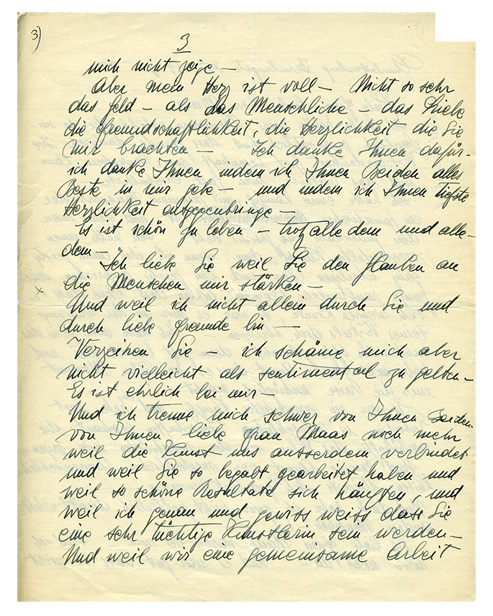 3)
3
mich nicht zeige —
Aber mein Herz ist voll — Nicht so sehr
das Geld — als das Menschliche — das Liebe
die Freundschaftlichkeit, die Herzlichkeit die Sie
mir brachten — Ich danke Ihnen dafür —
ich danke Ihnen indem ich Ihnen beiden alles
Beste in mir gebe — und indem ich Ihnen tiefste
Herzlichkeit entgegenbringe —
Es ist schön zu leben — trotz alle dem und alle-
dem —
Ich liebe Sie weil Sie den Glauben an
x
die Menschen mir stärken —
Und weil ich nicht allein durch Sie und
durch liebe Freunde bin —
Verzeihen Sie — ich schäme mich aber
nicht vielleicht als sentimental zu gelten —
Es ist ehrlich bei mir —
Und ich trenne mich schwer von Ihnen beiden
von Ihnen liebe Frau Maas noch mehr
weil die Kunst uns ausserdem verbindet
und weil Sie so begabt gearbeitet haben und
weil so schöne Resultate sich häuften, und
weil ich genau und gewiss weiss dass Sie
eine sehr tüchtige Künstlerin sein werden —
Und weil wir eine gemeinsame Arbeit